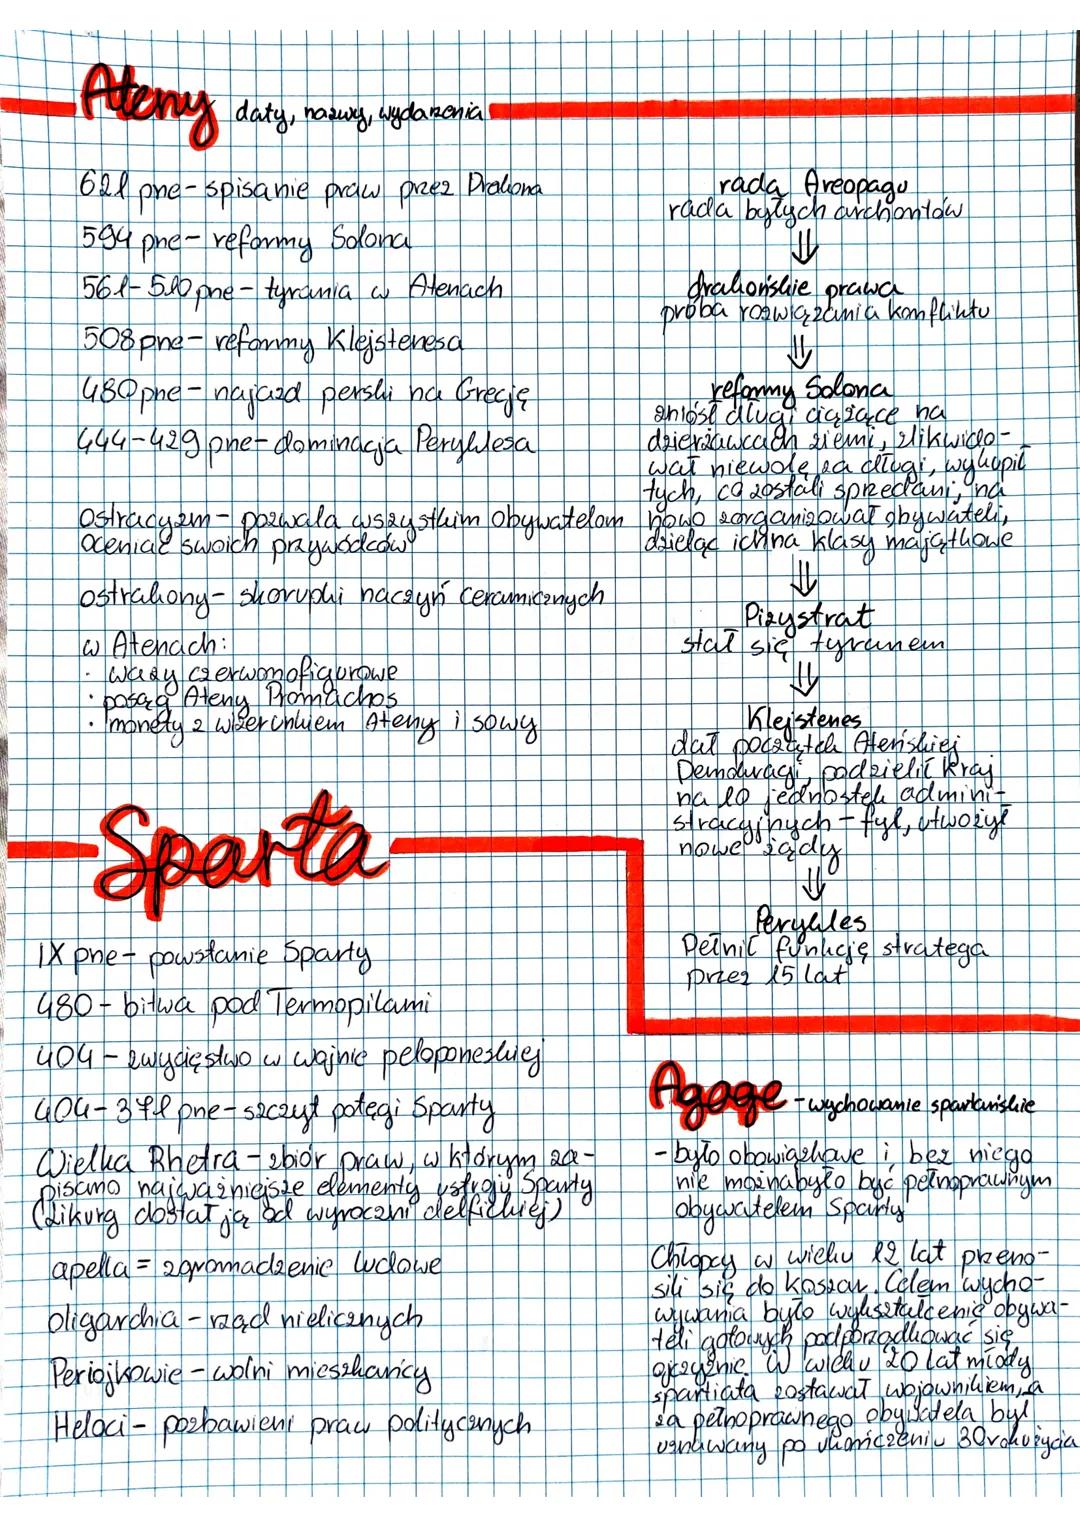 Ateny daty, nazwy, wydarzenia
621 pne - spisanie praw przez Drakona
594 pne - reformy Solona
561-510 pne - tyrania w Atenach
508 pne - reformy Klejstenesa
480 pne - najazd perski na Grecję
444-429 pne - dominacja Peryklesa
ostracyzm - pozwala wszystkim obywatelom
oceniać swoich przywódców
ostrakony - skorupki naczyń ceramicznych
w Atenach:
· wazy czerwonofigurowe
· posąg Ateny Promachos
· monety z wizerunkiem Ateny i sowy
rada Areopagu
rada byłych archontów
⇓
drakońskie prawa
próba rozwiązania konfliktu
⇓
reformy Solona
zniósł długi ciążące na
dzierżawcach ziemi, zlikwido-
wał niewolę za długi, wykupił
tych, co zostali sprzedani, na
nowo zorganizował obywateli,
dzieląc ich na klasy majątkowe
⇓
Pizystrat
stał się tyranem
⇓
Klejstenes
dał początek Ateńskiej
Demokracji, podzielił kraj
na 10 jednostek admini-
stracyjnych - fyl, utwożył
nowe sądy
⇓
Perykles
Pełnił funkcję stratega
przez 15 lat
Sparta
IX pne - powstanie Sparty
480 - bitwa pod Termopilami
404 - zwycięstwo w wojnie peloponeskiej
404-371 pne - szczyt potęgi Sparty
Wielka Rhetra - zbiór praw, w którym za-
pisano najważniejsze elementy ustroju Sparty
(Likurg dostał ją od wyroczni delfickiej)
apella = zgromadzenie ludowe
oligarchia - rząd nielicznych
Periojkowie - wolni mieszkańcy
Heloci - pozbawieni praw politycznych
Agoge - wychowanie spartańskie
- było obowiązkowe i bez niego
nie możnabyło być pełnoprawnym
obywatelem Sparty
Chłopcy w wieku 12 lat przeno-
sili się do koszar. Celem wycho-
wywania było wykształcenie obywa-
teli gotowych podporządkować się
ojczyźnie. W wieku 20 lat młody
spartiata zostawał wojownikiem, a
za pełnoprawnego obywatela był
uznawany po ukończeniu 30 roku życia